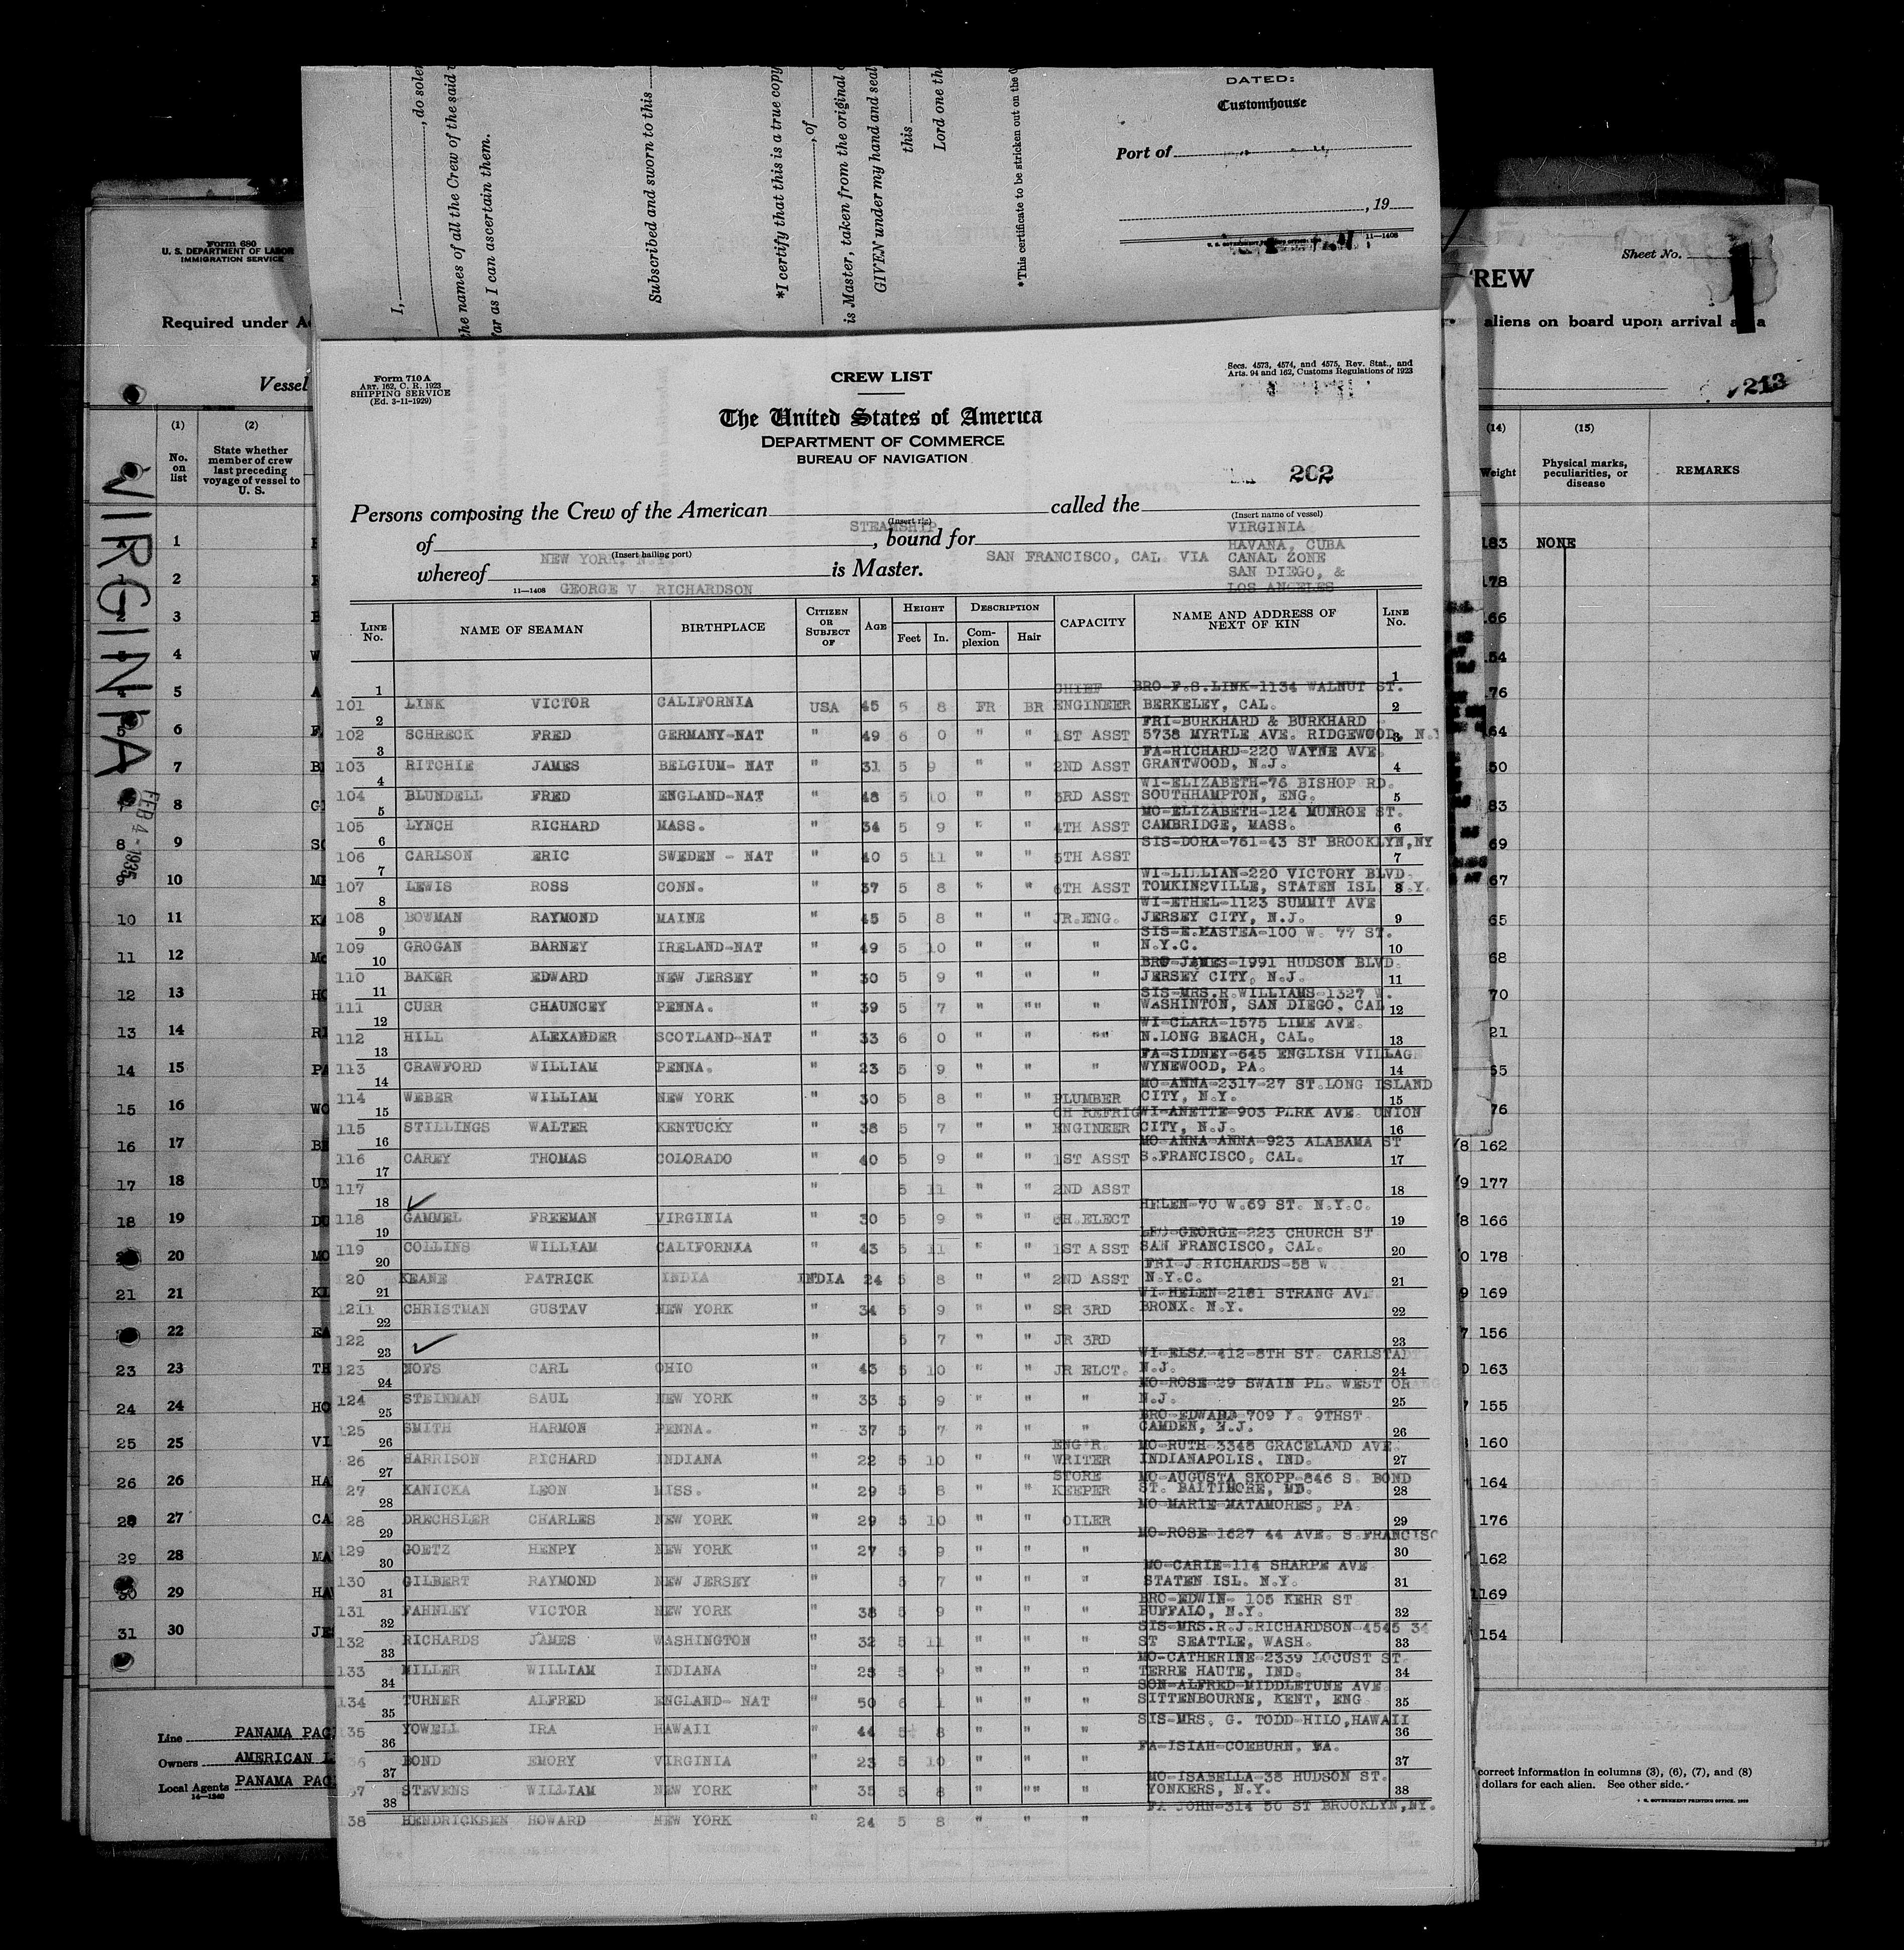 I, , do solem
the names of all the Crew of the said
far as I can ascertain them.
Subscribed and sworn to this
*I certify that this is a true copy
, of
is Master, taken from the original
GIVEN under my hand and seal
this
Lord one th
*This certificate to be stricken out on the
DATED:
Customhouse
Port of
, 19
11—1408
Form 680
U. S. DEPARTMENT OF LABOR
IMMIGRATION SERVICE
Required under A
Vessel
(1) (2)
No. on list
State whether member of crew last preceding voyage of vessel to U. S.
VIRGINIA
FEB 4 - 1935
Line PANAMA PAC
Owners AMERICAN L
Local Agents PANAMA PAC
14—1240
Form 710 A
ART. 162, C. R. 1923
SHIPPING SERVICE
(Ed. 3-11-1929)
CREW LIST
Secs. 4573, 4574, and 4575, Rev. Stat., and
Arts. 94 and 162, Customs Regulations of 1923
The United States of America
DEPARTMENT OF COMMERCE
BUREAU OF NAVIGATION
202
Persons composing the Crew of the American called the
STEAMSHIP (Insert rig) (Insert name of vessel) VIRGINIA
of , bound for HAVANA, CUBA
NEW YORK, N.Y. (Insert hailing port) SAN FRANCISCO, CAL. VIA CANAL ZONE
whereof is Master. SAN DIEGO, &
11—1408 GEORGE V RICHARDSON LOS ANGELES
LINE No. NAME OF SEAMAN BIRTHPLACE CITIZEN OR SUBJECT OF AGE HEIGHT Feet In. DESCRIPTION Complexion Hair CAPACITY NAME AND ADDRESS OF NEXT OF KIN LINE No.
1 1
CHIEF BRO-F.S.LINK-1134 WALNUT ST.
101 LINK VICTOR CALIFORNIA USA 45 5 8 FR BR ENGINEER BERKELEY, CAL. 2
FRI-BURKHARD & BURKHARD
102 SCHRECK FRED GERMANY-NAT " 49 6 0 " " 1ST ASST 5738 MYRTLE AVE. RIDGEWOOD, N.Y 3
FA-RICHARD-220 WAYNE AVE.
103 RITCHIE JAMES BELGIUM- NAT " 31 5 9 " " 2ND ASST GRANTWOOD, N.J. 4
WI-ELIZABETH-76 BISHOP RD.
104 BLUNDELL FRED ENGLAND-NAT " 48 5 10 " " 3RD ASST SOUTHHAMPTON, ENG. 5
MO-ELIZABETH-124 MUNROE ST.
105 LYNCH RICHARD MASS. " 34 5 9 " " 4TH ASST CAMBRIDGE, MASS. 6
SIS-DORA-761-43 ST BROOKLYN,NY
106 CARLSON ERIC SWEDEN - NAT " 40 5 11 " " 5TH ASST 7
WI-LILLIAN-220 VICTORY BLVD.
107 LEWIS ROSS CONN. " 37 5 8 " " 6TH ASST TOMKINSVILLE, STATEN ISL. N.Y. 8
WI-ETHEL-1123 SUMMIT AVE
108 BOWMAN RAYMOND MAINE " 45 5 8 " " JR.ENG. JERSEY CITY, N.J. 9
SIS-E.MASTEA-100 W. 77 ST.
109 GROGAN BARNEY IRELAND-NAT " 49 5 10 " " " N.Y.C. 10
BRO-JAMES-1991 HUDSON BLVD.
110 BAKER EDWARD NEW JERSEY " 30 5 9 " " " JERSEY CITY, N.J. 11
SIS-MRS.R.WILLIAMS-1327 W.
111 CURR CHAUNCEY PENNA. " 39 5 7 " "" " WASHINTON, SAN DIEGO, CAL 12
WI-CLARA-1575 LIME AVE.
112 HILL ALEXANDER SCOTLAND-NAT " 33 6 0 " " "" N.LONG BEACH, CAL. 13
FA-SIDNEY-645 ENGLISH VILLAG
113 CRAWFORD WILLIAM PENNA. " 23 5 9 " " " WYNEWOOD, PA. 14
MO-ANNA-2317-27 ST.LONG ISLAND
114 WEBER WILLIAM NEW YORK " 30 5 8 " " PLUMBER CITY, N.Y. 15
CH REFRIG WI-ANETTE-903 PARK AVE. UNION
115 STILLINGS WALTER KENTUCKY " 38 5 7 " " ENGINEER CITY, N.J. 16
MO-ANNA ANNA-923 ALABAMA ST
116 CAREY THOMAS COLORADO " 40 5 9 " " 1ST ASST S.FRANCISCO, CAL. 17
117 " 5 11 " " 2ND ASST 18
HELEN-70 W.69 ST. N.Y.C.
118 GAMMEL FREEMAN VIRGINIA " 30 5 9 " " CH.ELECT 19
GEORGE-223 CHURCH ST
119 COLLINS WILLIAM CALIFORNIA " 43 5 11 " " 1ST ASST SAN FRANCISCO, CAL. 20
FRI-J RICHARDS-58 W
120 KEANE PATRICK INDIA INDIA 24 5 8 " " 2ND ASST N.Y.C. 21
WI-HELEN-2181 STRANG AVE
1211 CHRISTMAN GUSTAV NEW YORK " 34 5 9 " " SR 3RD BRONX. N.Y. 22
122 " 5 7 " " JR 3RD 23
WI-ELSA-412-8TH ST. CARLSTAD
123 NOFS CARL OHIO " 43 5 10 " " JR ELCT. N.J. 24
MO-ROSE-29 SWAIN PL. WEST ORANG
124 STEINMAN SAUL NEW YORK " 33 5 9 " " " N.J. 25
BRO-EDWARD 709 N. 9THST
125 SMITH HARMON PENNA. " 37 5 7 " " " CAMDEN, N.J. 26
ENG'R. MO-RUTH-3348 GRACELAND AVE
26 HARRISON RICHARD INDIANA " 22 5 10 " " WRITER INDIANAPOLIS, IND. 27
STORE MO-AUGUSTA SKOPP-846 S. BOND
27 KANICKA LEON MISS. " 29 5 8 " " KEEPER ST. BALTIMORE, MD. 28
MO-MARIE-MATAMORES, PA.
128 DRECHSLER CHARLES NEW YORK " 29 5 10 " " OILER 29
MO-ROSE-1627 44 AVE. S.FRANCISC
129 GOETZ HENRY NEW YORK " 27 5 9 " " " 30
MO-CARIE-114 SHARPE AVE
130 GILBERT RAYMOND NEW JERSEY 5 7 " " " STATEN ISL. N.Y. 31
BRO-EDWIN- 105 KEHR ST
131 FAHNLEY VICTOR NEW YORK " 38 5 9 " " " BUFFALO, N.Y. 32
SIS-MRS.R.J.RICHARDSON-4545 34
132 RICHARDS JAMES WASHINGTON " 32 5 11 " " " ST SEATTLE, WASH. 33
MO-CATHERINE-2339 LOCUST ST.
133 MILLER WILLIAM INDIANA " 5 9 " " " TERRE HAUTE, IND. 34
SON-ALFRED-MIDDLETUNE AVE
134 TURNER ALFRED ENGLAND- NAT " 50 6 1 " " " SITTENBOURNE, KENT, ENG 35
SIS-MRS. G. TODD-HILO,HAWAII
135 YOWELL IRA HAWAII " 44 5 8 " " " 36
FA-ISIAH-COEBURN, VA.
36 BOND EMORY VIRGINIA " 23 5 10 " " " 37
MO-ISABELLA-38 HUDSON ST.
37 STEVENS WILLIAM NEW YORK " 35 5 8 " "" " YONKERS, N.Y. 38
FA JOHN-314 50 ST BROOKLYN,NY.
138 HENDRICKSEN HOWARD NEW YORK " 24 5 8 " " "
Sheet No. 1
REW
aliens on board upon arrival at a
213
(14) (15)
Weight Physical marks, peculiarities, or disease REMARKS
183 NONE
178
66
54
76
64
50
83
69
67
65
68
70
21
65
76
162
177
166
178
169
156
163
155
160
164
176
162
169
154
correct information in columns (3), (6), (7), and (8)
dollars for each alien. See other side.